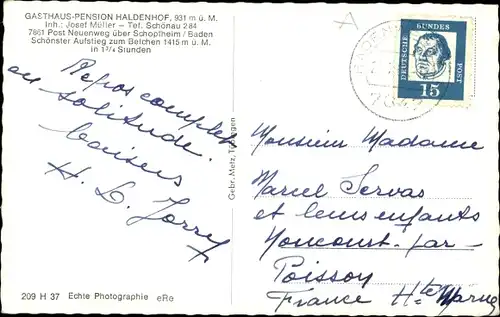 GASTHAUS-PENSION HALDENHOF, 931 m ü. M.
Inh.: Josef Müller - Tel. Schönau 284
7861 Post Neuenweg über Schopfheim / Baden
Schönster Aufstieg zum Belchen 1415 m ü. M.
in 1¾ Stunden
Repos complet
en solitude.
baisers
H. L. Jorry
Gebr. Metz, Tübingen
209 H 37 Echte Photographie eRe
DEUTSCHE BUNDESPOST
15
Monsieur Madame
Marcel Servas
et leurs enfants
Noncourt-par-
Poisson
France Hte Marne